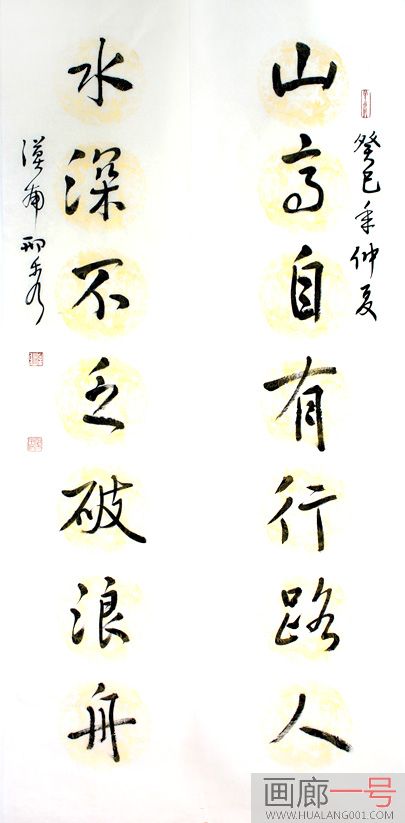 癸巳年仲夏
山高自有行路人
水深不乏破浪舟
画廊一号
WWW.HUALANG001.COM